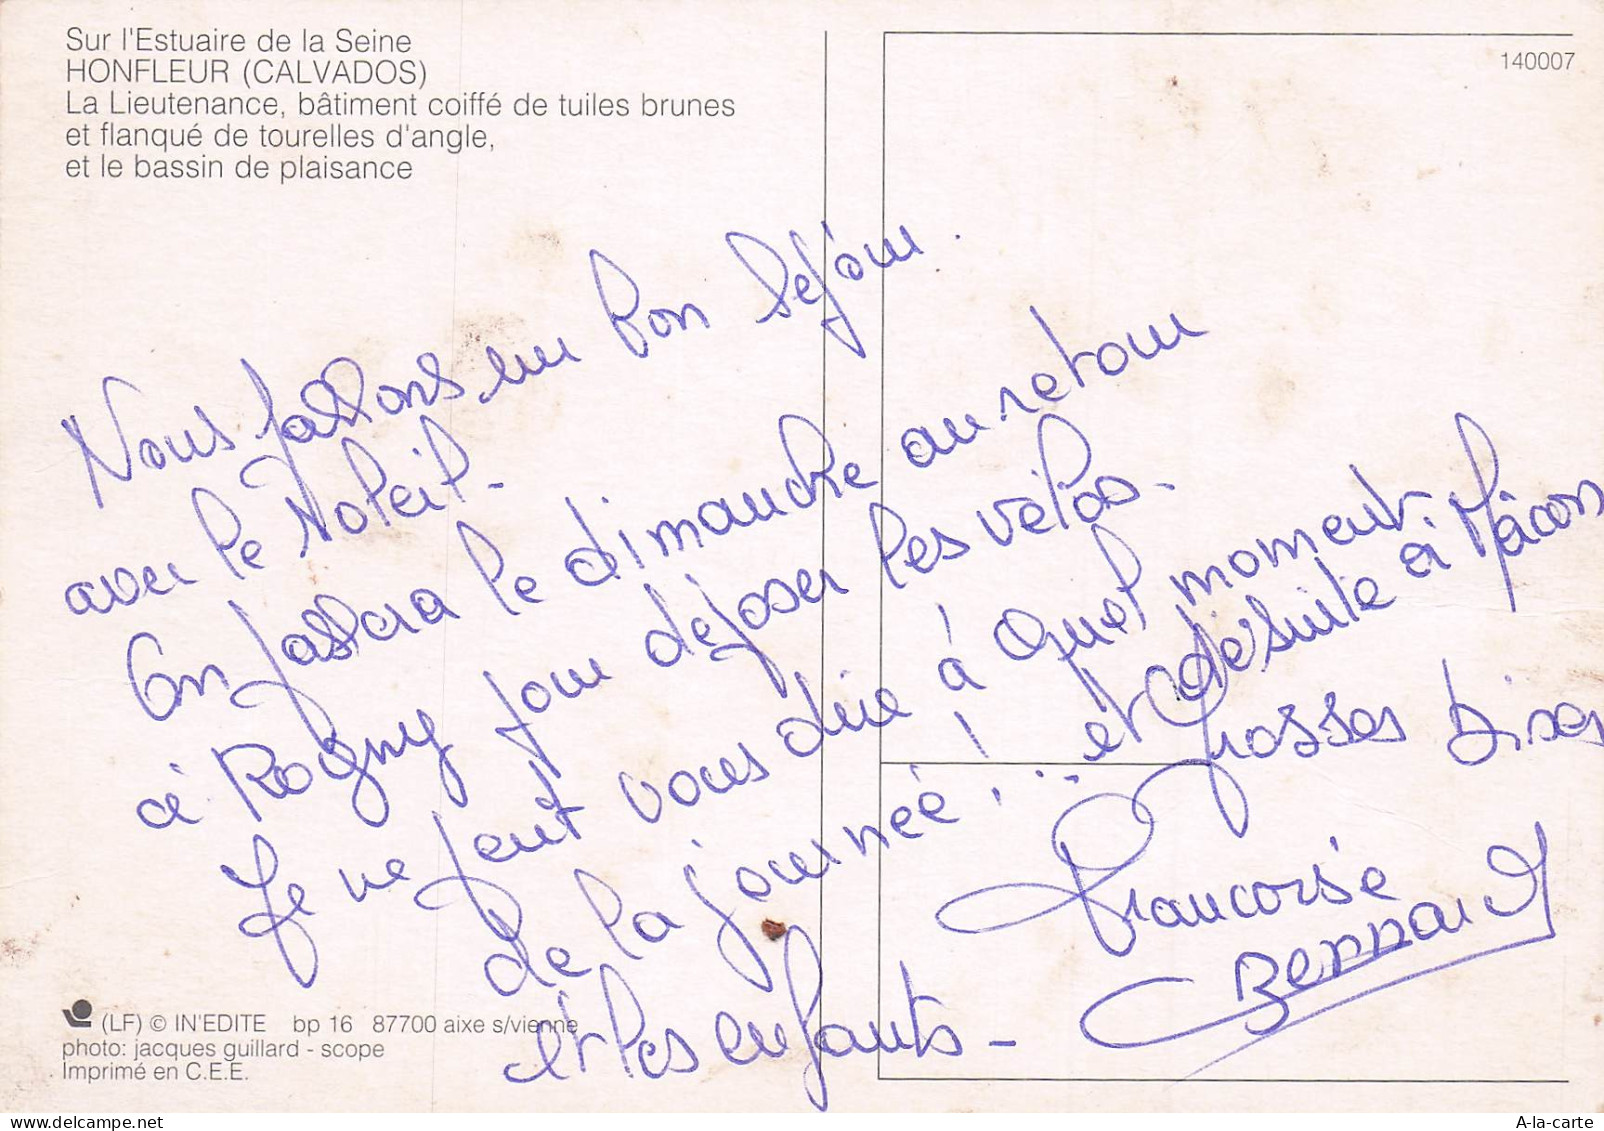 Sur l'Estuaire de la Seine
HONFLEUR (CALVADOS)
La Lieutenance, bâtiment coiffé de tuiles brunes
et flanqué de tourelles d'angle,
et le bassin de plaisance
140007
Nous passons un bon séjour.
avec le soleil -
On passera le dimanche au retour
à Rogny pour déposer les vélos -
Je ne peut vous dire à quel moment
de la journée ! ... et désuite à Mâcon
Grosses bises
Francoise
Bernard
et les enfants -
(LF) © IN'EDITE bp 16 87700 aixe s/vienne
photo: jacques guillard - scope
Imprimé en C.E.E.
A-la-carte